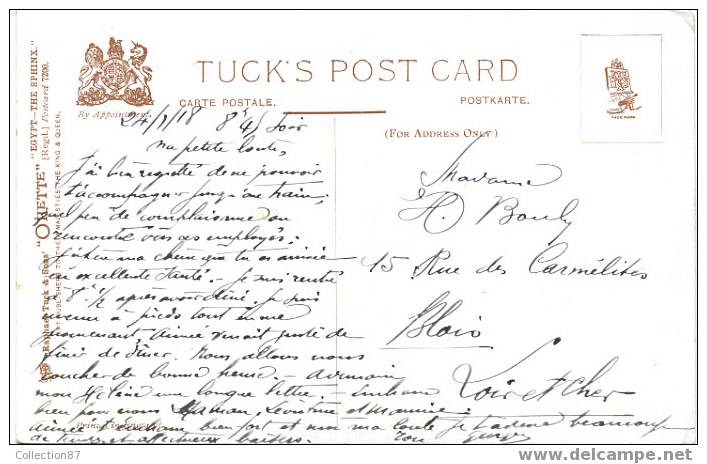 TUCK'S POST CARD
CARTE POSTALE.
POSTKARTE.
By Appointment.
(FOR ADDRESS ONLY)
TRADE MARK
Raphael Tuck & Sons' "OILETTE" "EGYPT—THE SPHINX."
[Regd.] Postcard 7200.
ART PUBLISHERS TO THEIR MAJESTIES THE KING & QUEEN.
Printed in
24/1/18 8h 45 Soir
ma petite
J'ai bien regretté de ne pouvoir
t'accompagner jusqu'au train;
quel peu de complaisance on
rencontre des employés.
que tu es arrivée
en excellente santé. - Je suis rentré
8h 1/2 après avoir dîné. Je suis
à pieds tout en me
promenant, Aimée venait juste de
finir de dîner. Nous allons nous
coucher de bonne heure. -
mon Hélène une longue lettre. -
bien pour nous Maman, et Maurice.
Aimée bien fort et moi ma Je t'adore beaucoup
de tendres et affectueux baisers. Ton Georges
Madame
H. Bouly
15 Rue des Carmélites
Blois
Loir et Cher
Collection87
www.delcampe.net